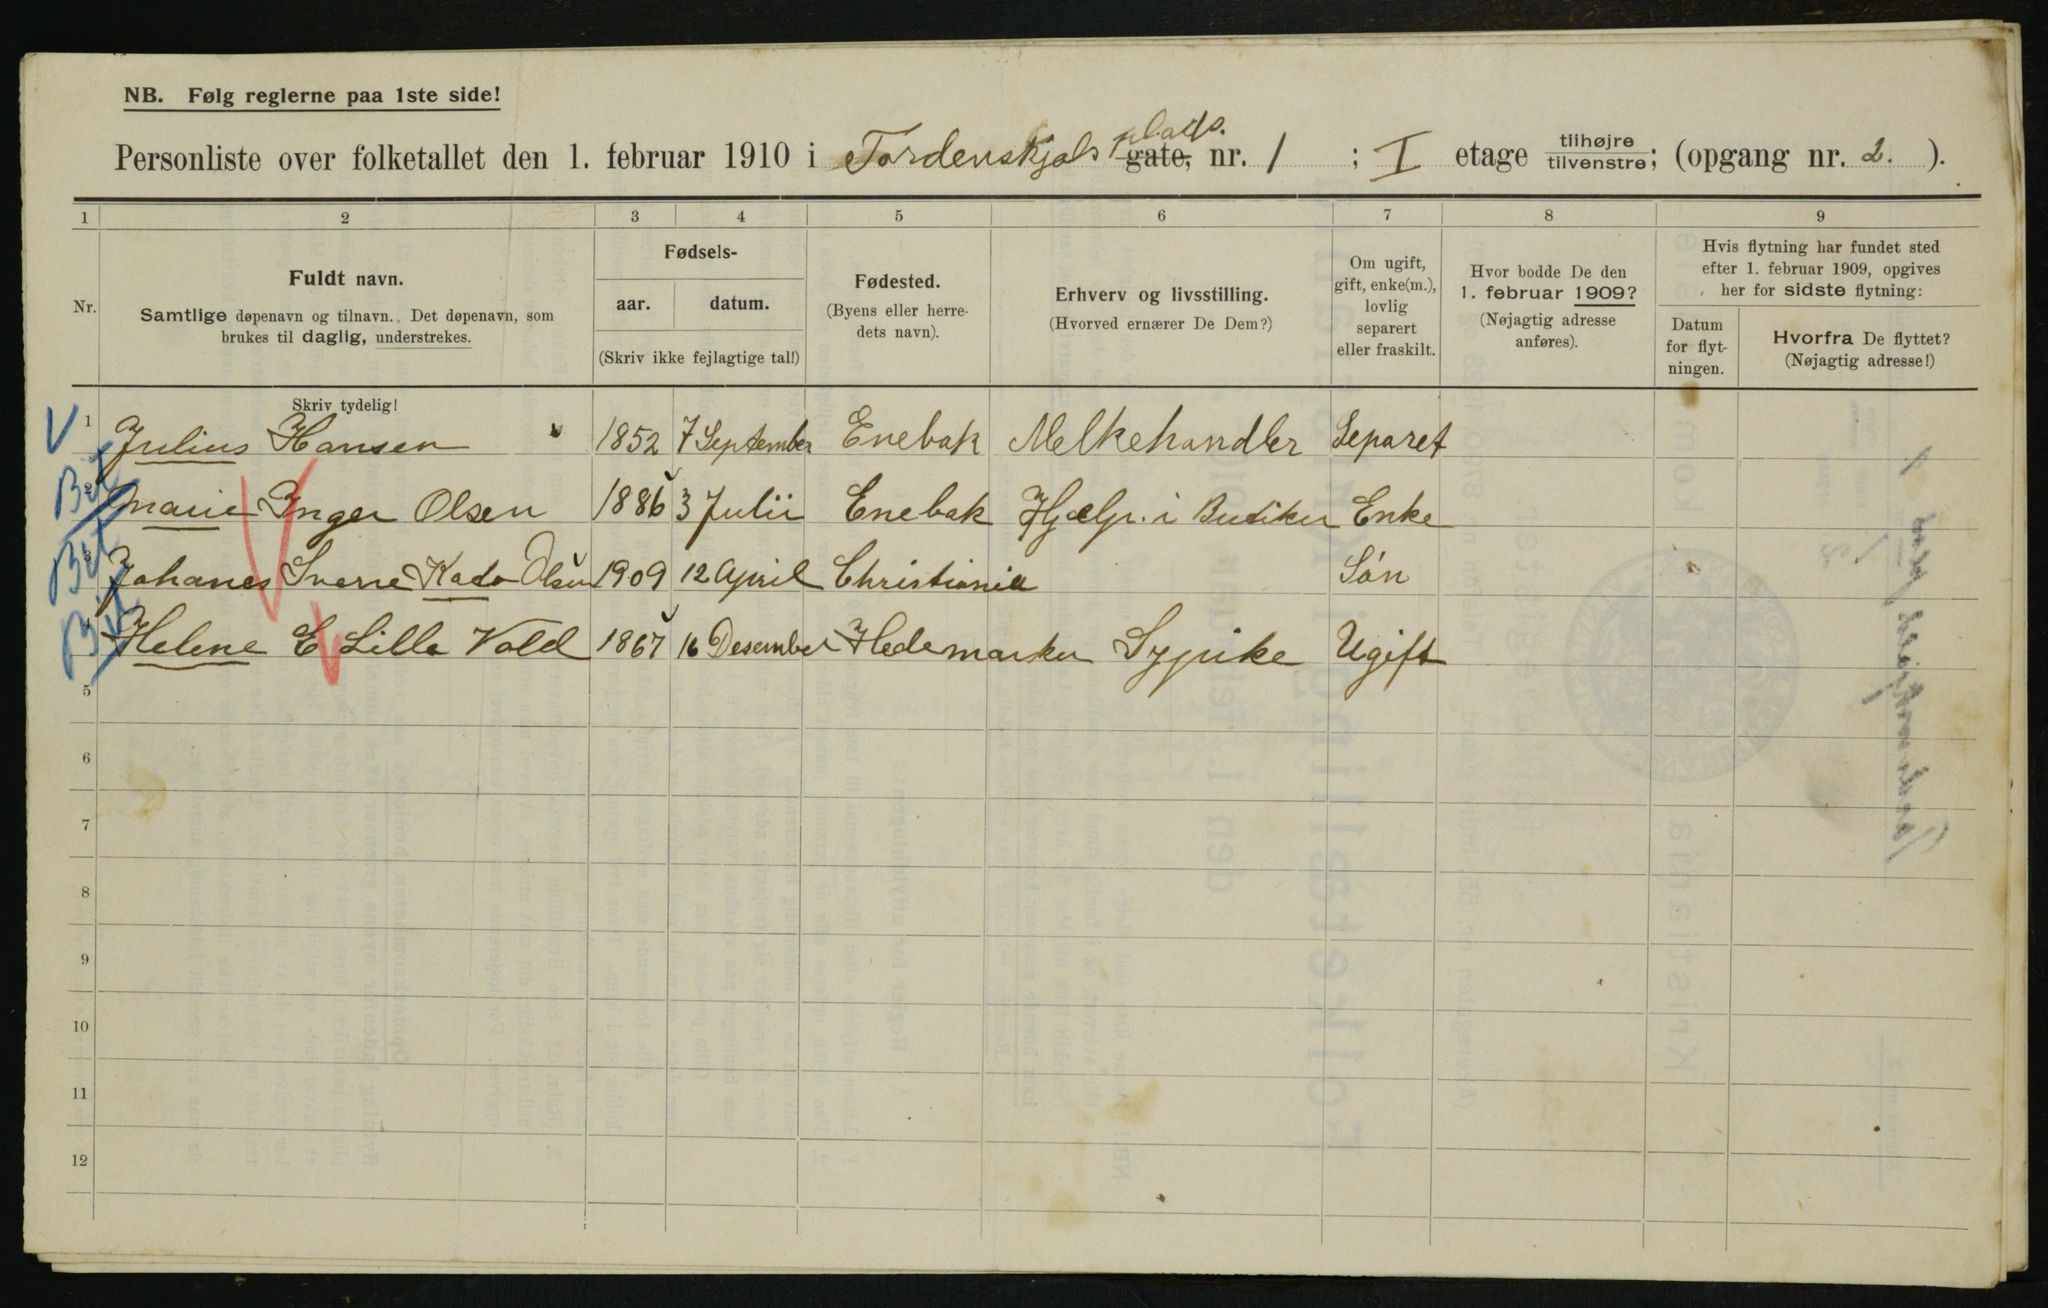 NB. Følg reglerne paa 1ste side!
Personliste over folketallet den 1. februar 1910 i Tordenskjols plads. gate, nr. 1 ; I etage tilhøjre tilvenstre; (opgang nr. 2. ).
1 2 3 4 5 6 7 8 9
Nr.
Fuldt navn.
Samtlige døpenavn og tilnavn. Det døpenavn, som
brukes til daglig, understrekes.
Skriv tydelig!
Fødsels-
aar. datum.
(Skriv ikke fejlagtige tal!)
Fødested.
(Byens eller herre-
dets navn).
Erhverv og livsstilling.
(Hvorved ernærer De Dem?)
Om ugift,
gift, enke(m.),
lovlig
separert
eller fraskilt.
Hvor bodde De den
1. februar 1909?
(Nøjagtig adresse
anføres).
Hvis flytning har fundet sted
efter 1. februar 1909, opgives
her for sidste flytning:
Datum
for flyt-
ningen.
Hvorfra De flyttet?
(Nøjagtig adresse!)
1 Julius Hansen 1852 7 September Enebak Melkehandler Separet
2 Marie Inger Olsen 1886 3 Julii Enebak Hjælp. i Butiken Enke
3 Johanes Sverre Kado Olsen 1909 12 April Christiania Søn
4 Helene E Lille Vold 1867 16 Desember Hedemarken Sypike Ugift
5
6
7
8
9
10
11
12